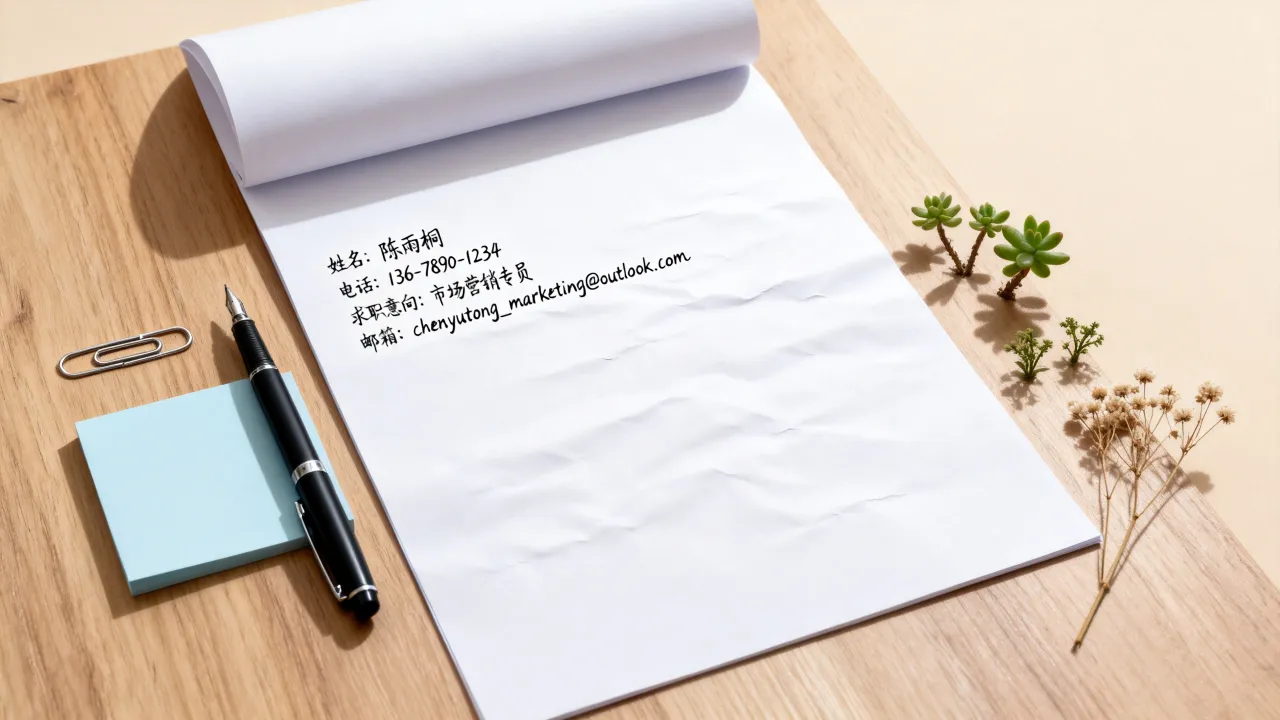 姓名：陈雨桐
电话：136-7890-1234
求职意向：市场营销专员
邮箱：chenyutong_marketing@outlook.com